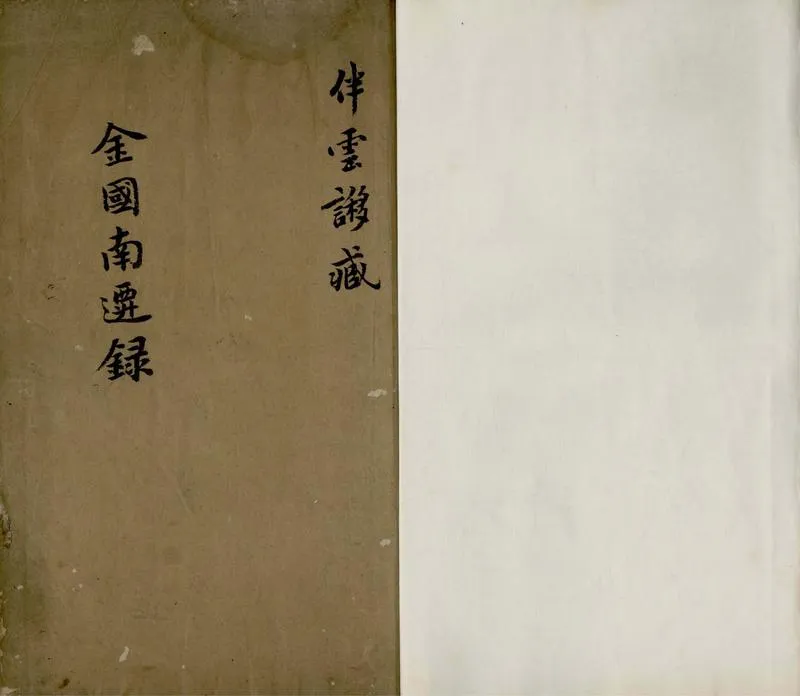 伴雲謻藏
金國南遷録